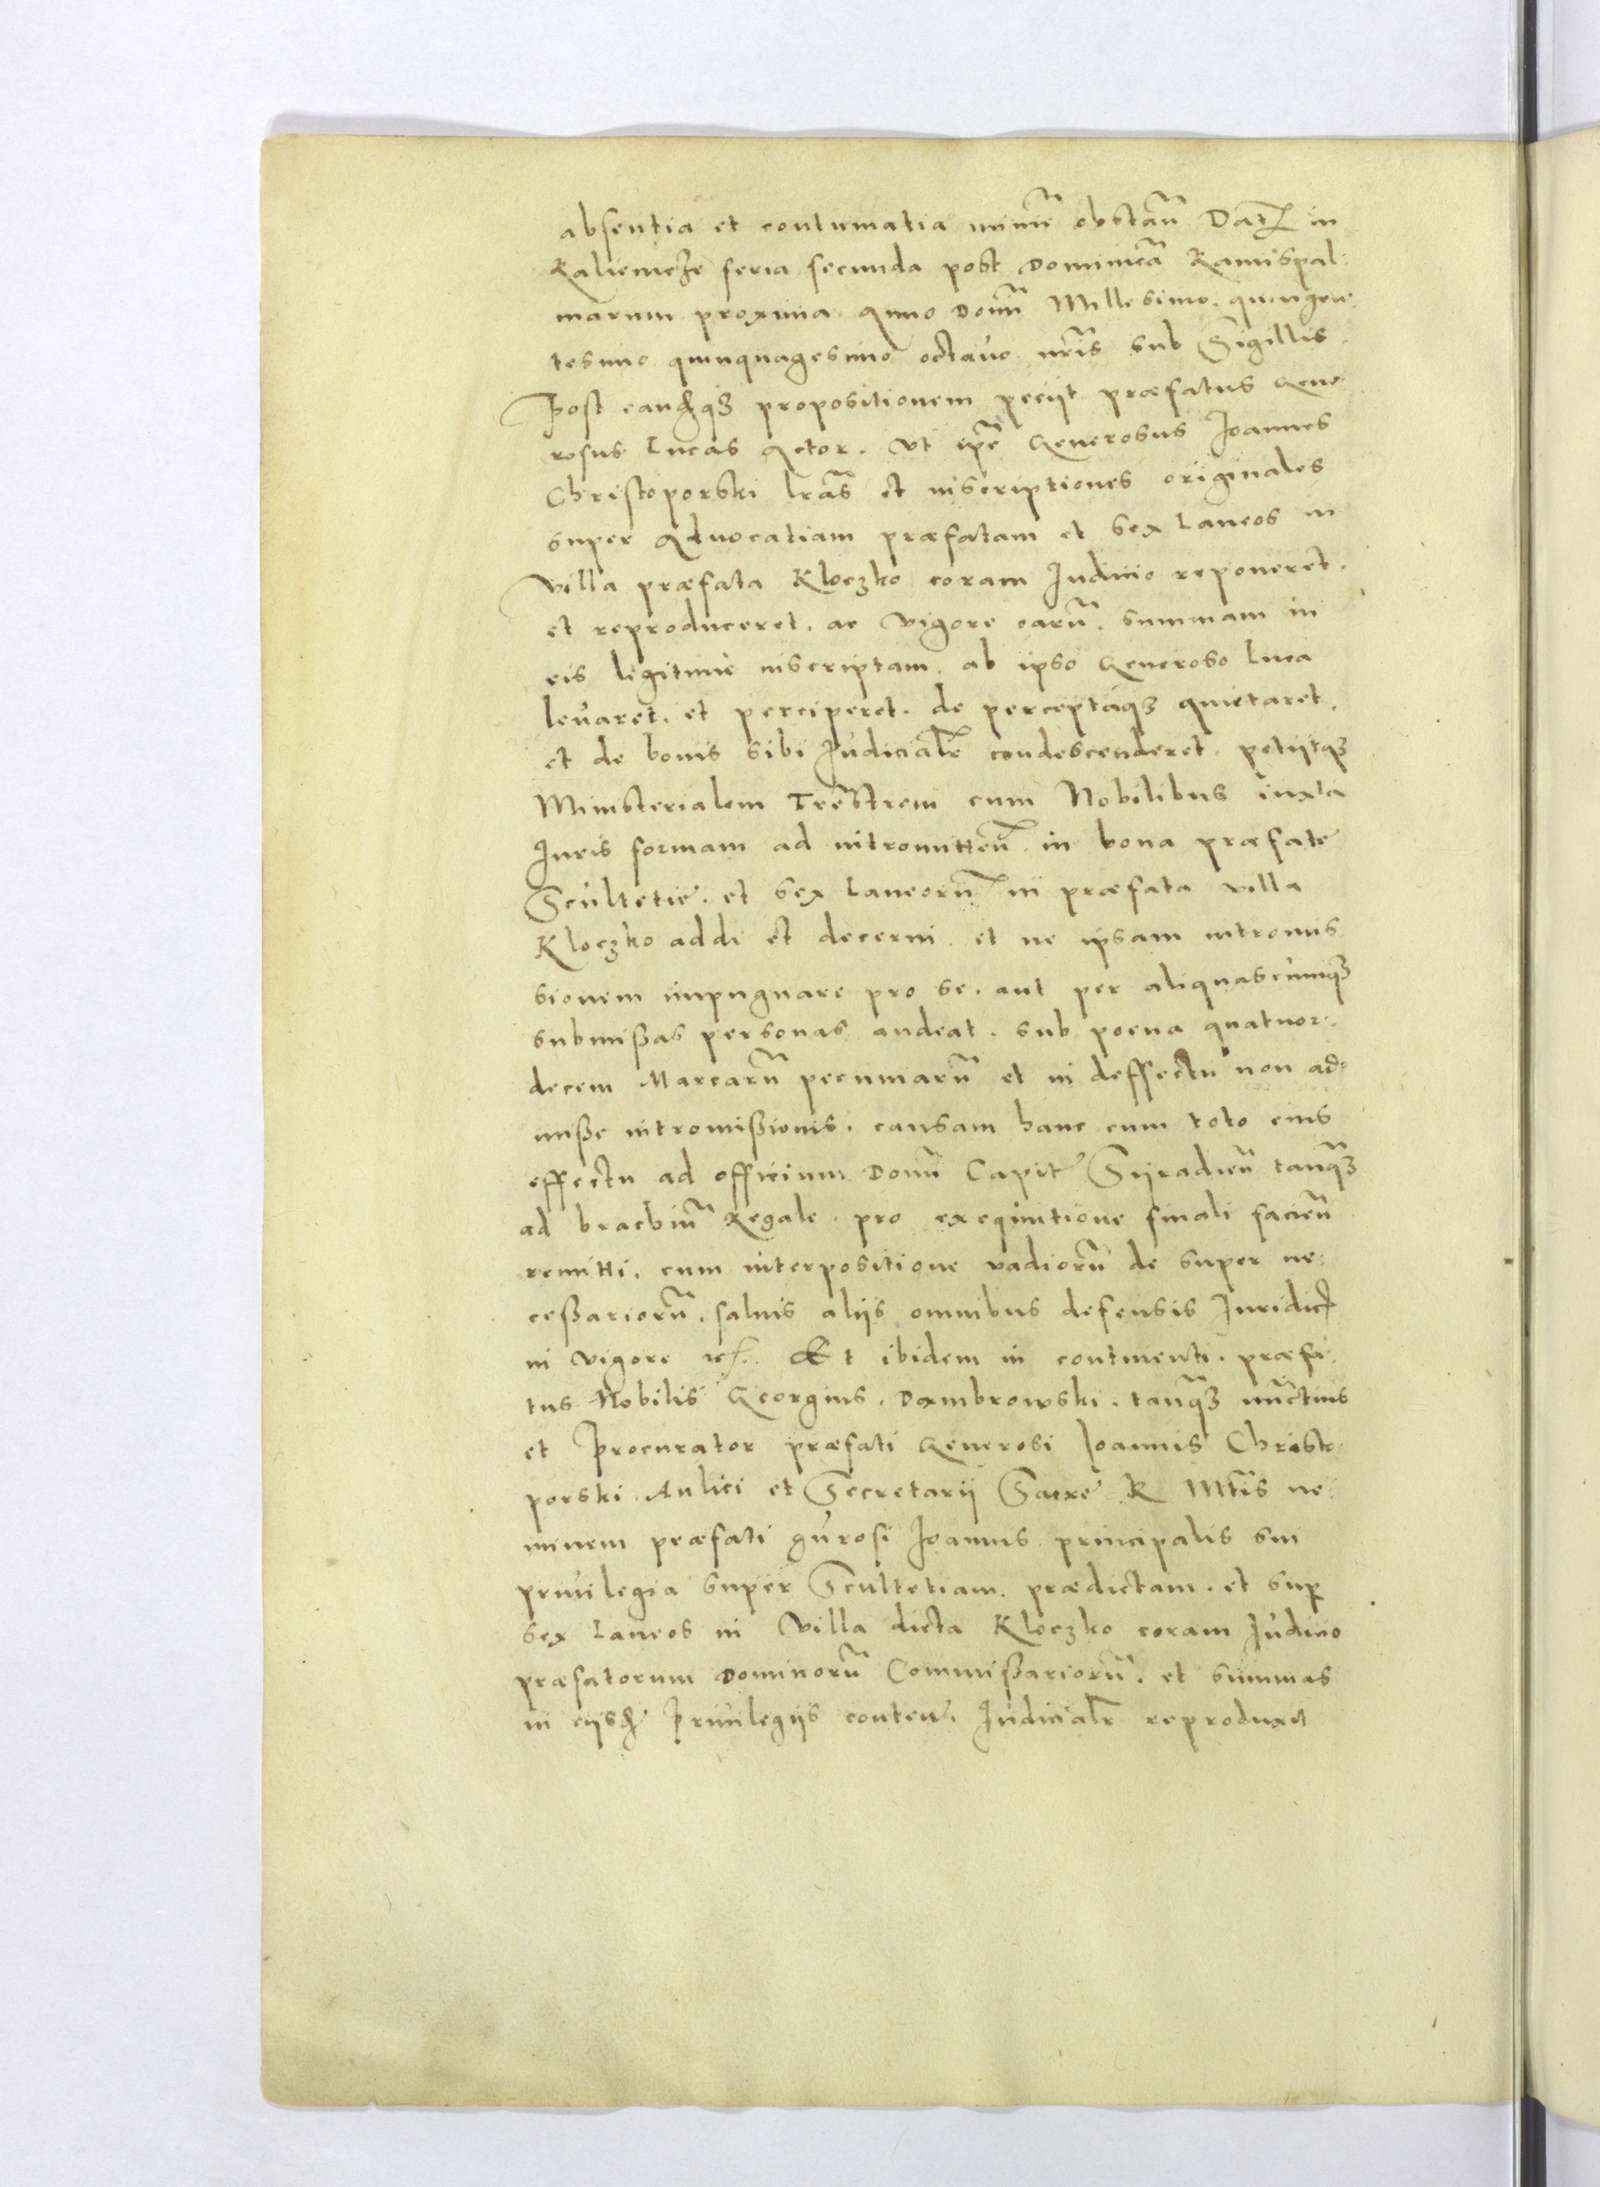 absentia et contumatia minimē obstan̄ Dat̄ in
Raliemcze feria secunda post Dominicā Ramispal:
marum proxima Anno Domī Millesimo quingen:
tesimo quinquagesimo octavo nrīs sub Sigillis.
Post eandq₃ propositionem peciit præfatus Gene:
rosus Lucas Actor. Vt ipē Generosus Joannes
Christoporski lrās et inscriptiones originales
super Advocatiam præfatam et sex Laneos in
villa præfata Kloczko coram Iudicio reponeret.
et reproduceret. ac vigore earū. summam in
eis legitimè inscriptam. ab ipso Generoso Luca
levaret. et perciperet. de perceptaq₃ quietaret.
et de bonis sibi Iudicialr̄ condescenderet. petiitq₃
Ministerialem Trēstrem cum Nobilibus iuxta
Iuris formam ad intromitten̄ in bona præfate
Scultetie. et sex Laneorū in præfata villa
Kloczko addi et decerni. et ne ipsam intromis
sionem impugnare pro se. aut per aliquascumq₃
submißas personas audeat. sub poena quatuor:
decem Marcarū pecuniarū et in deffectu non ad:
mißæ intromißionis. causam hanc cum toto eius
effectu ad officium Domī Capit Siiradien̄ tanq̄₃
ad brachiū Regale. pro exequutione finali facien̄
remitti. cum interpositione vadiorū de super ne:
ceßariorū. salvis aliis omnibus defensis Iuridict
in vigore rc. Et ibidem in continenti. præfa:
tus Nobilis Georgius. Dambrowski. tanq̄₃ nūctius
et Procurator præfati Generosi Joannis Christo:
porski. Aulici et Secretarii Sacre R Mtīs no:
minem præfati Gn̄rosi Joannis principalis sui
privilegia super Scultetiam. prædictam. et sup
sex Laneos in Villa dicta Kloczko coram Iudicio
præfatorum Dominorū Commißariorū. et summas
in eiisd Privilegiis conten. Iudicialr̄ reproduxit